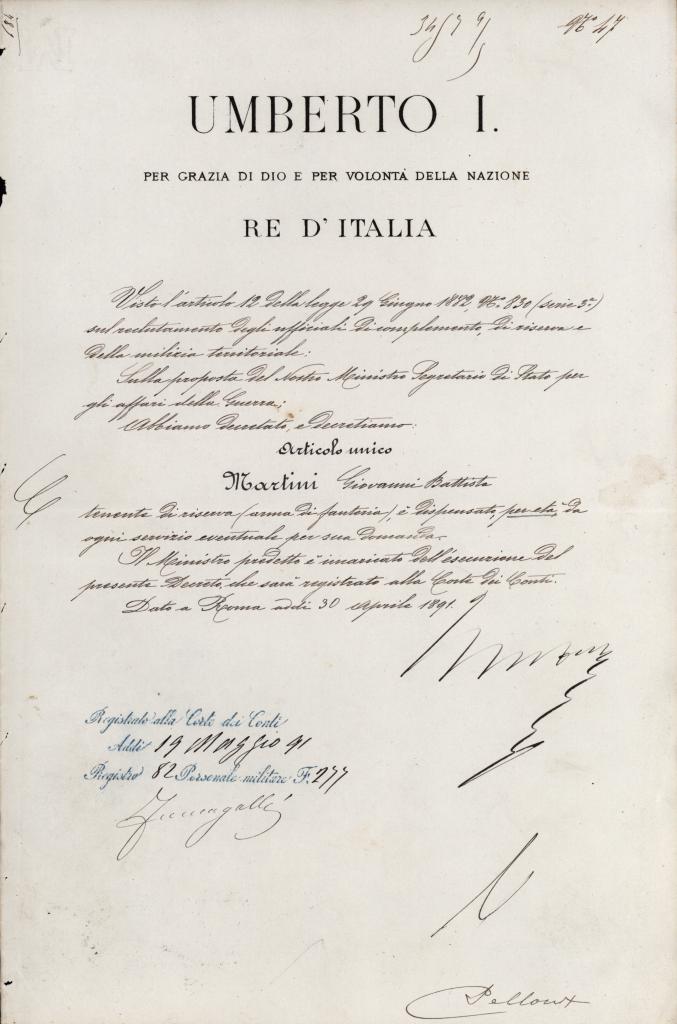 Nº 47
UMBERTO I.
PER GRAZIA DI DIO E PER VOLONTÀ DELLA NAZIONE
RE D'ITALIA
Visto l'articolo 12 della legge 29 Giugno 1882, Nº. 830 (serie 3ª)
sul reclutamento degli ufficiali di complemento, di riserva e
della milizia territoriale:
Sulla proposta del Nostro Ministro Segretario di Stato per
gli affari della Guerra;
Abbiamo decretato e decretiamo:
Articolo unico
Martini Giovanni Battista
tenente di riserva (arma di fanteria), è dispensato, per età, da
ogni servizio eventuale per sua domanda.
Il Ministro predetto è incaricato dell'esecuzione del
presente Decreto, che sarà registrato alla Corte dei Conti.
Dato a Roma addì 30 Aprile 1891.
Umberto
Registrato alla Corte dei Conti
Addì 19 Maggio 91
Registro 82 Personale militare F. 277
Pelloux